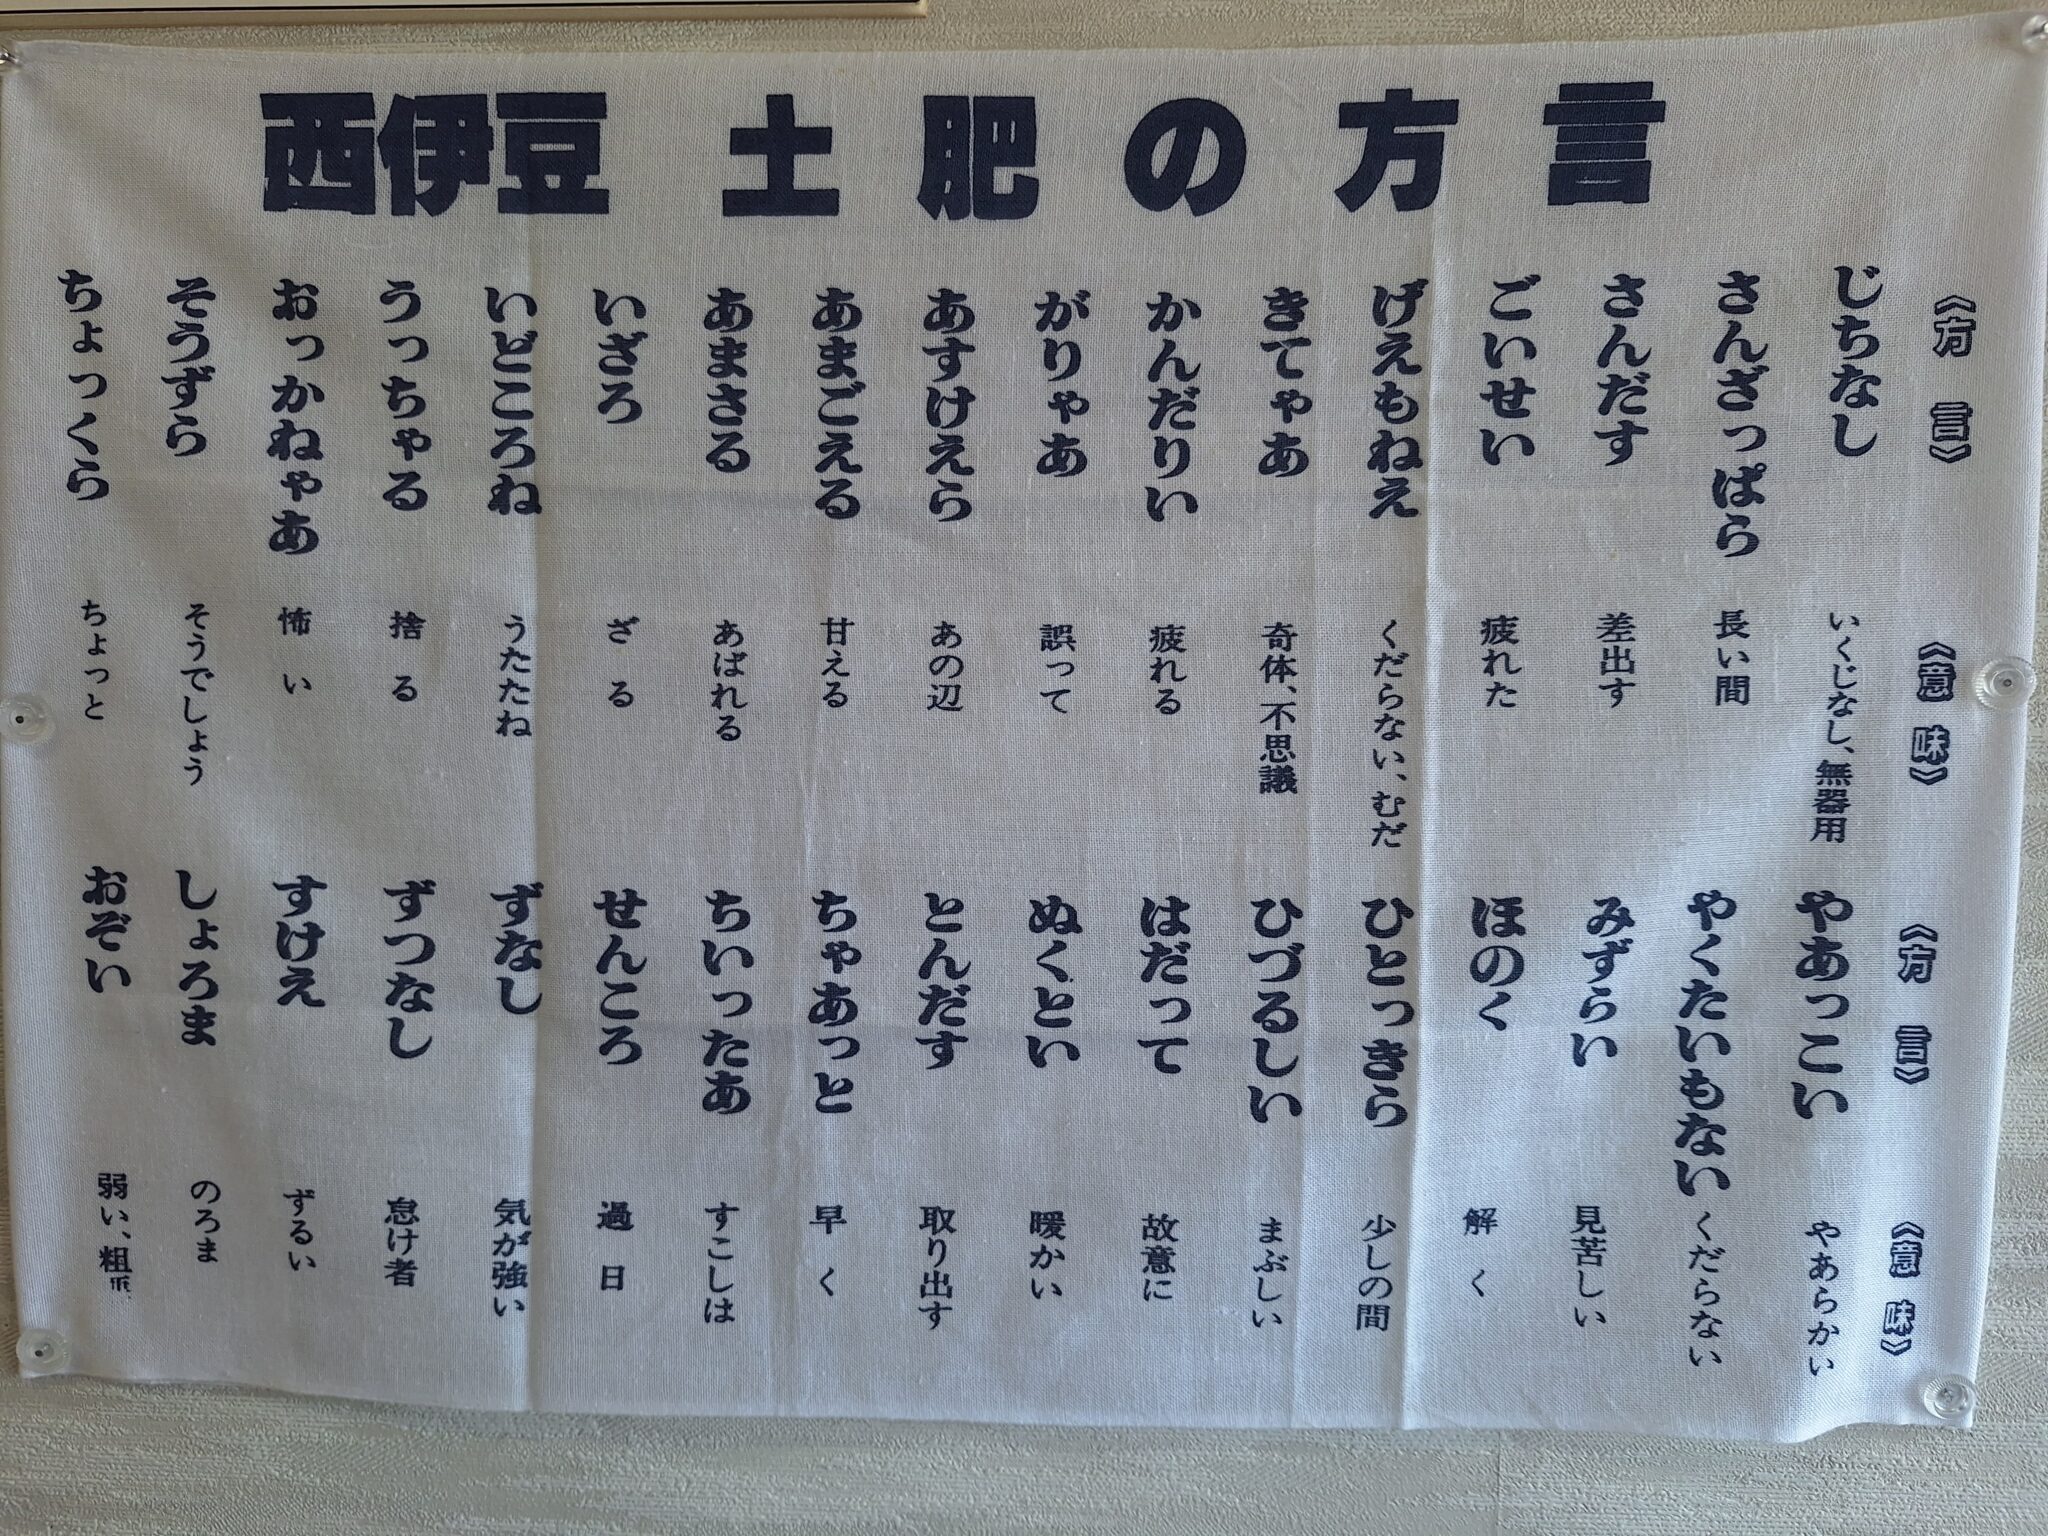 西伊豆 土肥の方言
《方言》
じちなし
さんざっぱら
さんだす
ごいせい
げえもねえ
きてゃあ
かんだりい
がりゃあ
あすけえら
あまごえる
あまさる
いざろ
いどころね
うっちゃる
おっかねゃあ
そうずら
ちょっくら
《意味》
いくじなし、無器用
長い間
差出す
疲れた
くだらない、むだ
奇体、不思議
疲れる
誤って
あの辺
甘える
あばれる
ざる
うたたね
捨る
怖い
そうでしょう
ちょっと
《方言》
やあっこい
やくたいもない
みずらい
ほのく
ひとっきら
ひづるしい
はだって
ぬくとい
とんだす
ちゃあっと
ちいったあ
せんころ
ずなし
ずつなし
すけえ
しょろま
おぞい
《意味》
やあらかい
くだらない
見苦しい
解く
少しの間
まぶしい
故意に
暖かい
取り出す
早く
すこしは
過日
気が強い
怠け者
ずるい
のろま
弱い、粗